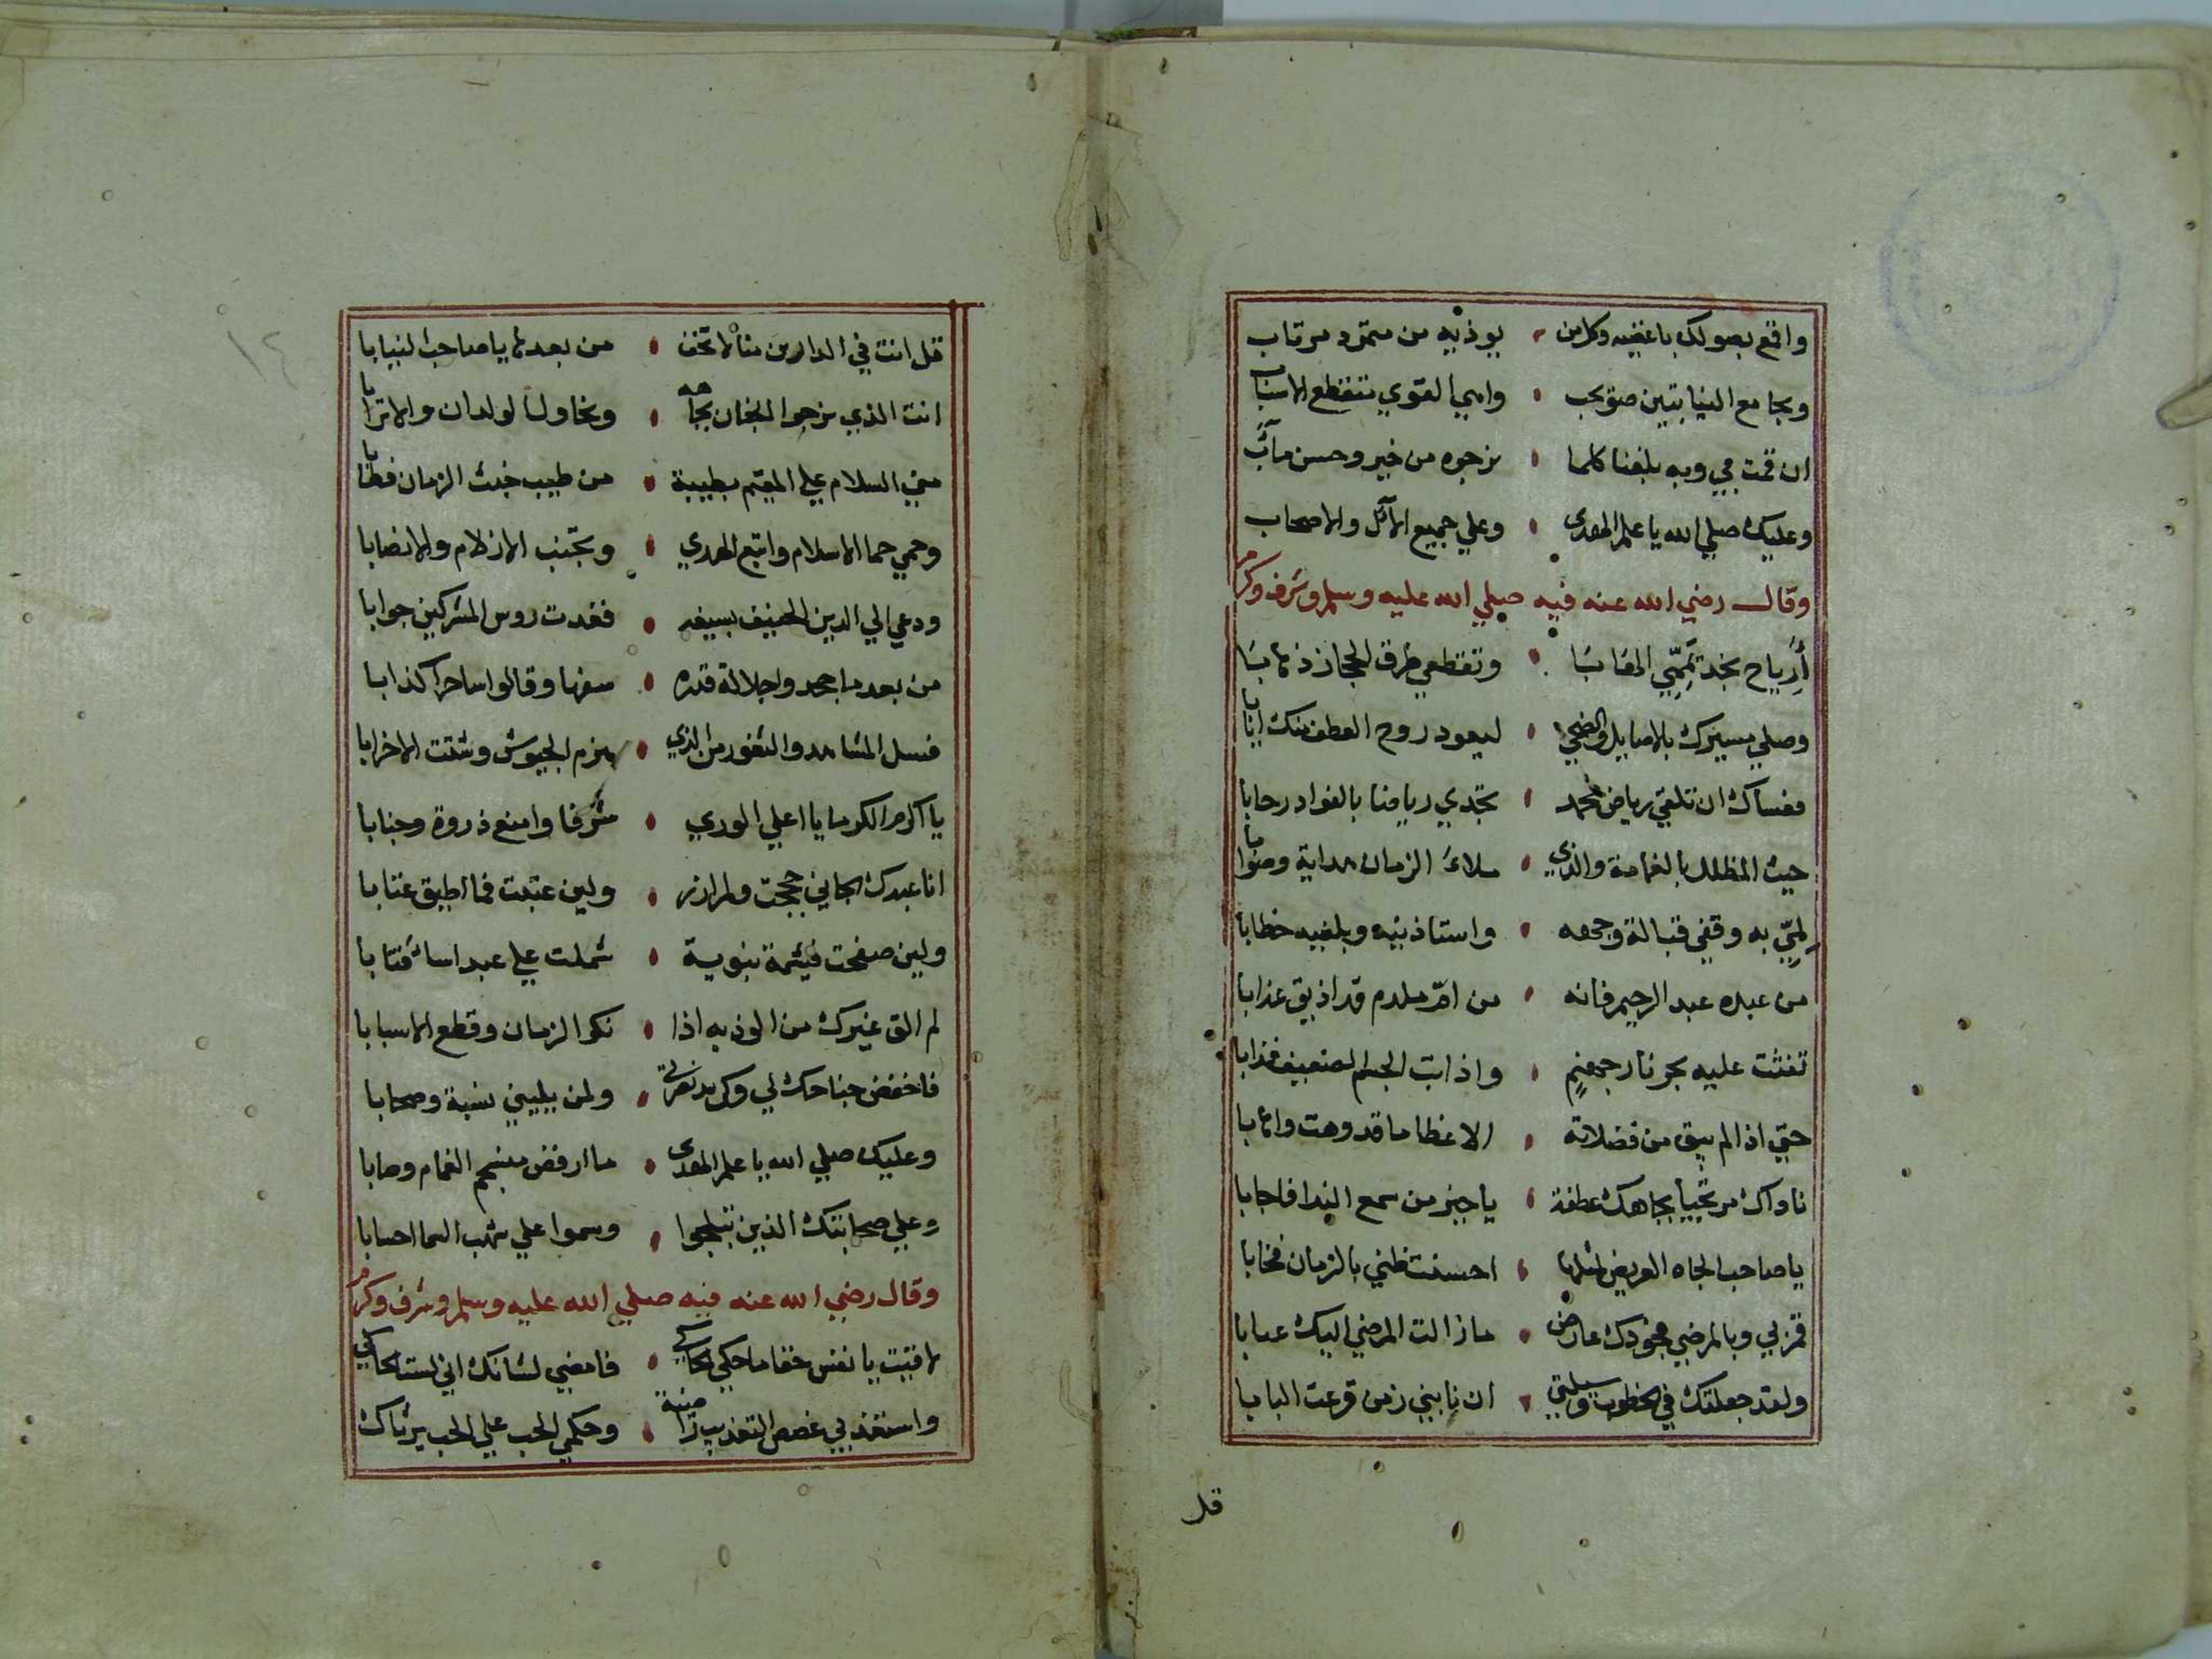 واقمع بصولك باغضيه وكل من يوذيه من متمرد مرتاب
وبجامع النيابتين صويحب واهي القوي تتقطع الاسباب
ان قمت بي وبه بلغنا كلما نرجوه من خير وحسن مآب
وعليك صلي الله يا علم الهدى وعلي جميع الآل والاصحاب
وقال رضي الله عنه فيه صلي الله عليه وسلم وشرف وكرم
أرياح نجد تممي وتقطعي طرق الحجاز ذهابا
وصلي مسيرك بالاصايل والضحي ليعود روح العطف منك ايابا
فعساك ان تلقي رياض محمد تجدي رياضا بالفواد رحابا
حيث المظلل بالغمامة والذي ملاء الزمان هداية وصوابا
لمي به وقفي قبالة وجهه واستاذنيه وبلغيه خطابا
من عبده عبد الرحيم فانه من ام ملدم قد اذيق عذابا
نفثت عليه بحر نار جهنم واذابت الجسم الضعيف فذابا
حتي اذا لم يبق من فضلاته الا عظاما قد وهت واهابا
ناداك مرتجيا بجاهك عطفة يا خير من سمع الندا فاجابا
يا صاحب الجاه العريض لمثلها احسنت ظني بالزمان فخابا
قم بي وبالمرضي فجودك عارض ما زالت المرضي اليك
ولقد جعلتك في الخطوب وسيلتي ان نابني زمن قرعت البابا
قل
قل انت في الدارين منا لا تخف من بعدها يا صاحب النيابا
انت الذي نرجو الجنان بجاهه ونحاول الولدان والاترابا
مني السلام علي المقيم بطيبة من طيب خبث الزمان فطابا
وحمي حما الاسلام واتبع الهدي وتجنب الازلام والانصابا
ودعي الي الدين الحنيف بسيفه فغدت روس المشركين جوابا
من بعد ما جحدوا جلالة قدره سفها وقالوا ساحرا كذابا
فسل المشاهد والثغور من الذي هزم الجيوش وشتت الاحزابا
يا اكرم الكرما يا اعلي الوري شرفا وامنع ذروة وجنابا
انا عبدك الجاني حججت ولم ازر ولين عتبت فما اطيق عتابا
ولين صفحت فشيمة نبوية شملت علي عبد اسا فتابا
لم الق غيرك من الوذ به اذا نكر الزمان وقطع الاسبابا
فاخفض جناحك لي وكن ولمن يليني نسبة وصحابا
وعليك صلي الله يا علم الهدى ما ارفض منسجم الغمام وصابا
وعلي صحابتك الذين تبلجوا وسموا علي شهب السما احسابا
وقال رضي الله عنه فيه صلي الله عليه وسلم وشرف وكرم
لاقيت يا نفس حقا ما حكي الحاكي فامضي لشانك اني لست
واستعذبي غصص التعذيب راضية وحكمي الحب علي الحب يرثاك